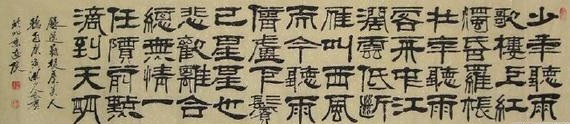 少年聽雨
歌樓上紅
燭昏羅帳
壯年聽雨
客舟中江
闊雲低斷
雁叫西風
而今聽雨
僧廬下鬢
已星星也
悲歡離合
總無情一
任階前點
滴到天明